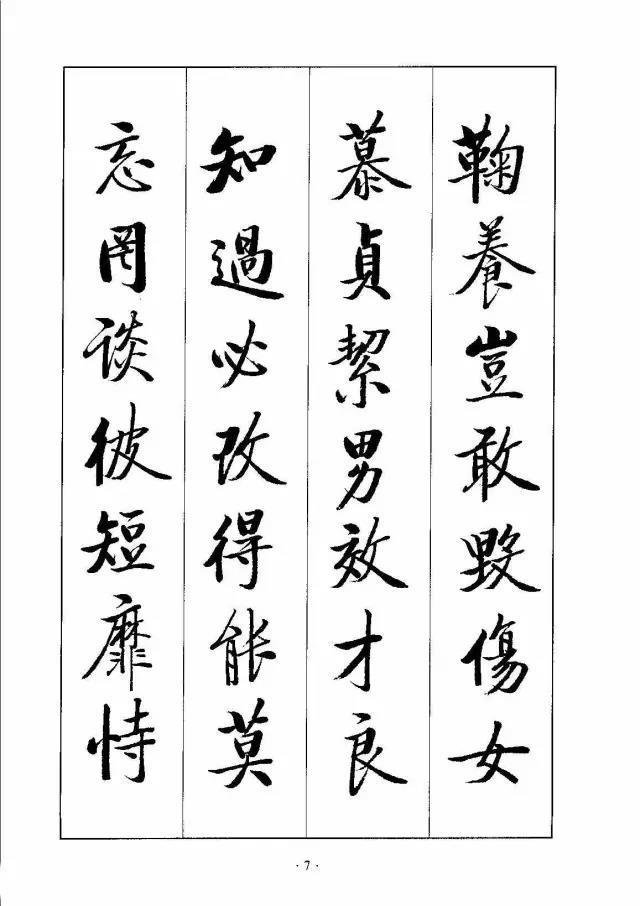 鞠養豈敢毀傷女
慕貞絜男效才良
知過必改得能莫
忘罔談彼短靡恃
·7·